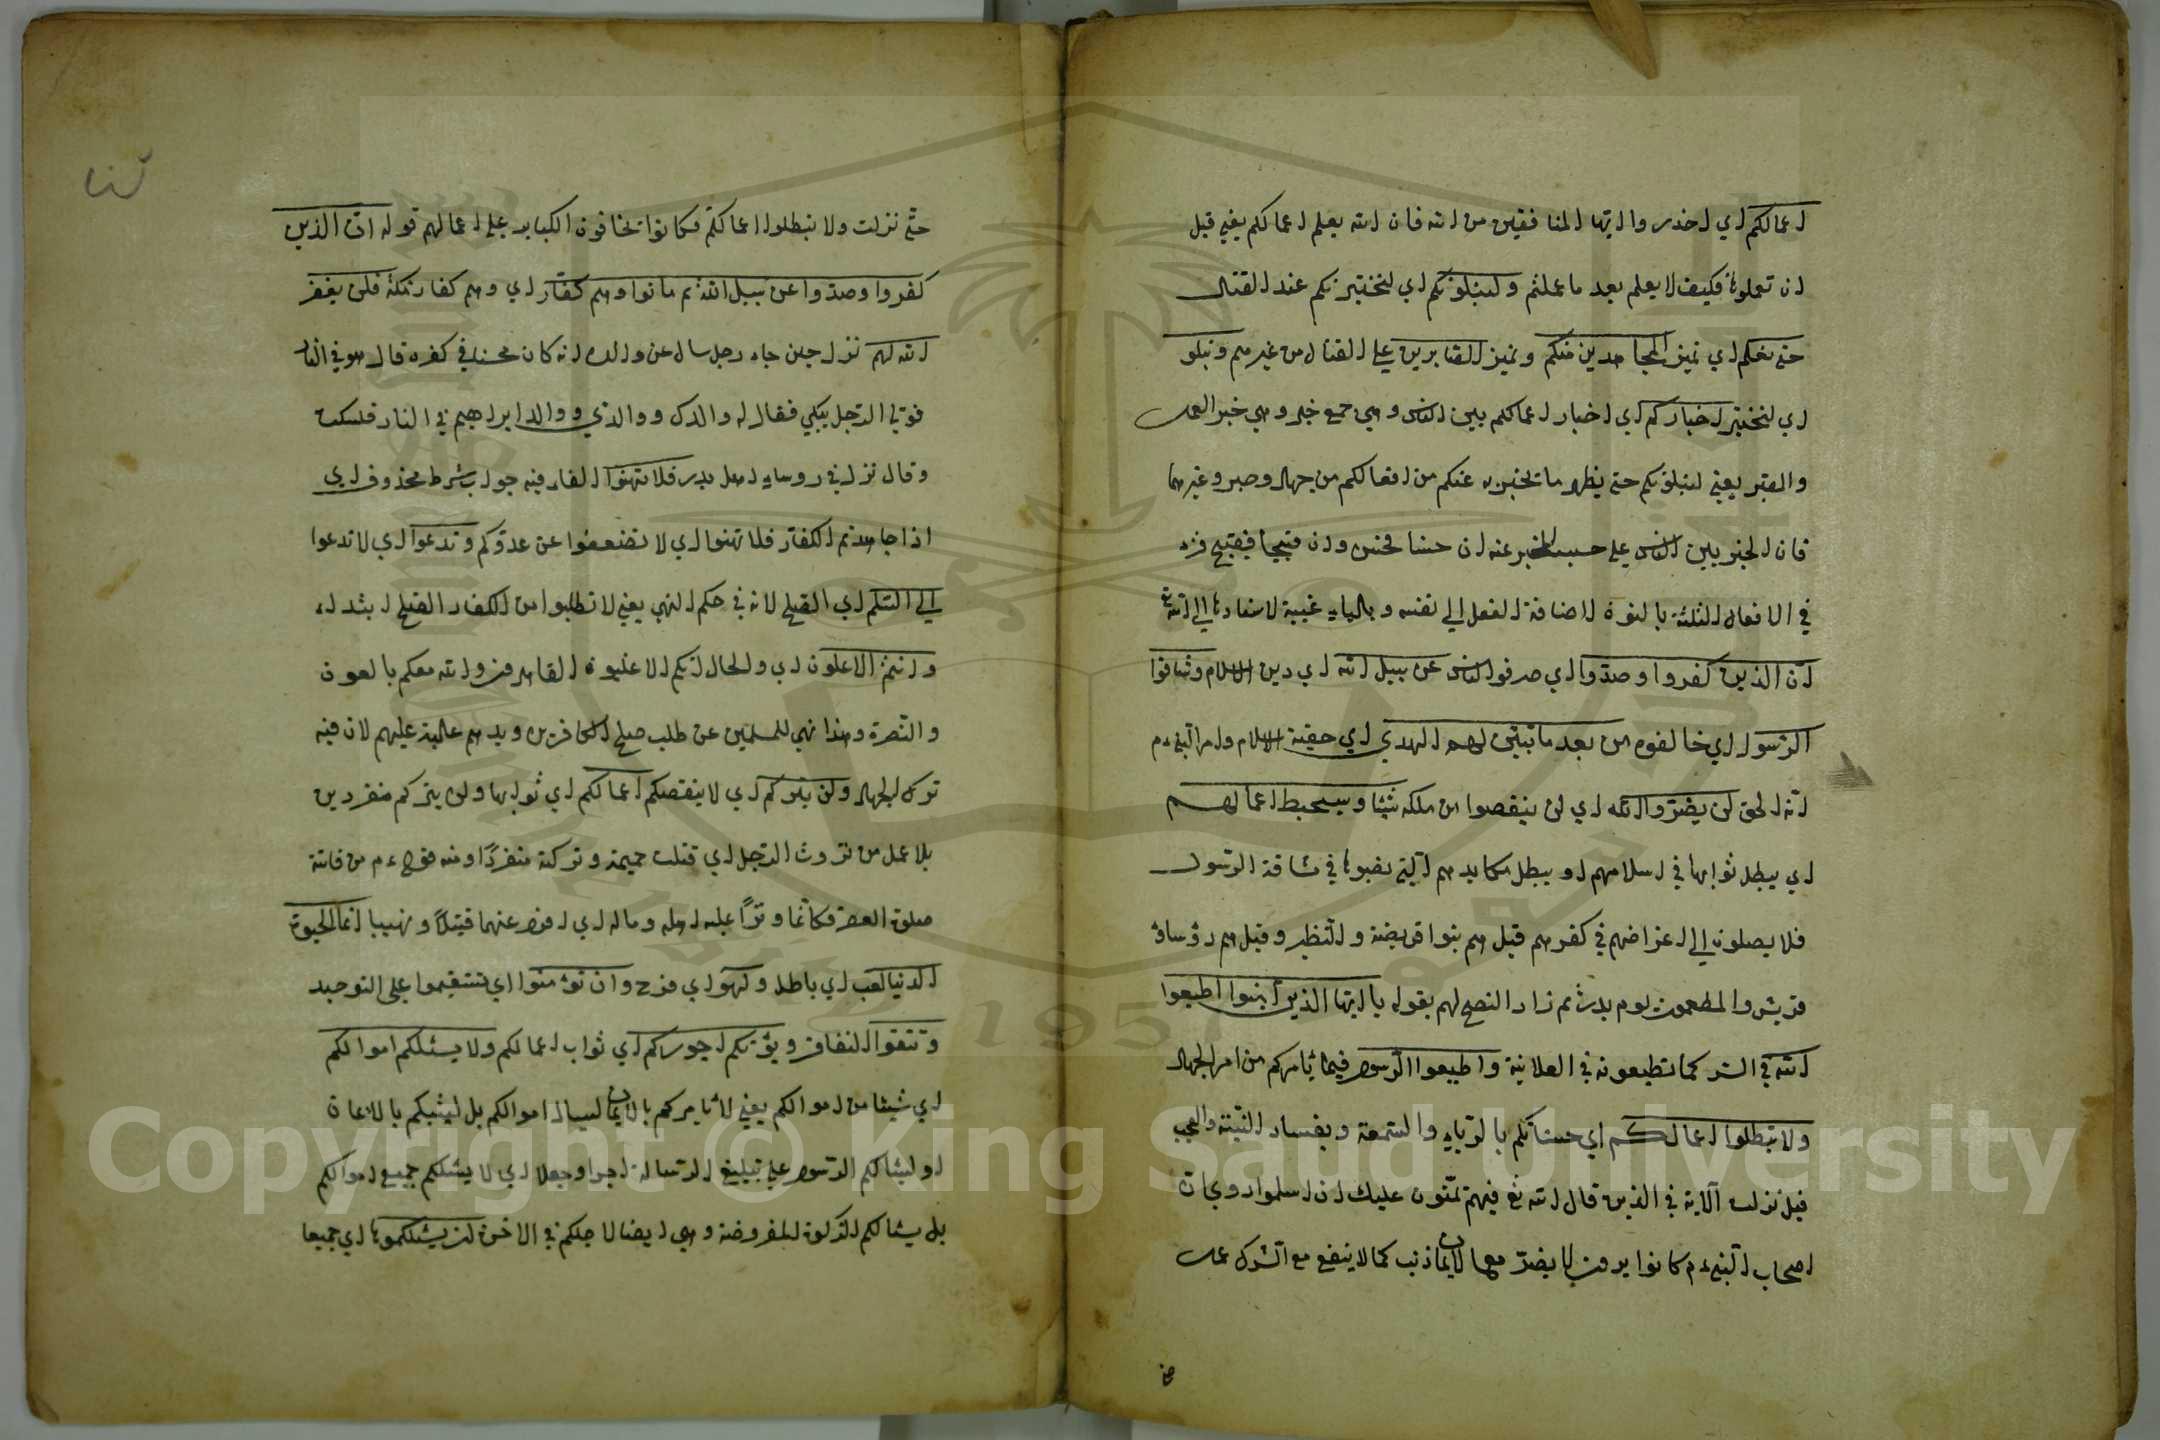 اعمالكم اي احذروا ايها المنافقين من الله فان الله يعلم اعمالكم يعني قبل
ان تعملوها فكيف لا يعلم بعد ما عملتم ولنبلونكم اي لنختبرنكم عند القتال
حتى نعلم اي نميز المجاهدين منكم ونميز الصابرين على القتال من غيرهم ونبلو
اي لنختبر اخباركم اي اخبار اعمالكم بين الناس وهي جمع خبر وهي خبر العمل
والصبر يعني لنبلونكم حتى يظهر ما نخبر به عنكم من افعالكم من جهاد وصبر وغيرهما
فان الخبر بين الناس على حسب المخبر عنه ان حسنا فحسن وان قبيحا فقبيح قرء
في الافعال الثلثة بالنون لاضافة الفعل الى نفسه وبالياء غيبة لاسنادها الى الله تع
ان الذين كفروا وصدوا اي صرفوا الناس عن سبيل الله اي دين الاسلام وشاقوا
الرسول اي خالفوه من بعد ما تبين لهم الهدى اي حقية الاسلام وامر النبي ءم
انه الحق لن يضروا الله اي لن ينقصوا من ملكه شيئا وسيحبط اعمالهم
اي يبطل ثوابها في اسلامهم او يبطل مكايدهم التي نصبوها في مشاقة الرسول
فلا يصلون الى اغراضهم في كفرهم قيل هم بنوا قريضة والنظير وقيل هم رؤساؤ
قريش والمطعمون يوم بدر ثم زاد النصح لهم بقوله يا ايها الذين آمنوا اطيعوا
الله في السر كما تطيعونه في العلانية واطيعوا الرسول فيما يأمركم من امر الجهاد
ولا تبطلوا اعمالكم اي حسناتكم بالرياء والسمعة وبفساد النية والعجب
قيل نزلت الآية في الذين قال الله تع فيهم يمنون عليك ان اسلموا روي ان
اصحاب النبي ءم كانوا يرون لا يضر مع الايمان ذنب كما لا ينفع مع الشرك عمل
حتى
لنا
حتى نزلت ولا تبطلوا اعمالكم فكانوا يخافون الكبائر على اعمالهم قوله ان الذين
كفروا وصدوا عن سبيل الله ثم ماتوا وهم كفار اي وهم كفار مكة فلن يغفر
الله لهم نزل حين جاء رجل سال عن والده انه كان محسنا في كفره قال هو في النار
فولى الرجل يبكي فقال له والدك ووالدي ووالد ابراهيم في النار فسكت
وقال نزل في روساء اهل بدر فلا تهنوا الفاء فيه جواب شرط محذوف اي
اذا جاهدتم الكفار فلا تهنوا اي لا تضعفوا عن عدوكم وتدعوا اي لا تدعوا
الى السلم اي الصلح لانه في حكم النهي يعني لا تطلبوا من الكفار الصلح ابتداء
وانتم الاعلون اي والحال انكم الاغلبون القاهرون والله معكم بالعون
والنصرة وهذا نهي للمسلمين عن طلب صلح الكافرين ويدهم عالية عليهم لان فيه
ترك الجهاد ولن يتركم اي لا ينقصكم اعمالكم اي ثوابها ولن يتركم منفردين
بلا عمل من وترت الرجل اي قتلت حميمه وتركته منفردًا ومنه قوله ءم من فاتته
صلوة العصر فكانما وترًا عليه اهله وماله اي افرد عنهما قتيلًا ونهيبا انما الحيوة
الدنيا لعب اي باطل ولهو اي فرح وان تؤمنوا اي تستقيموا على التوحيد
وتتقوا النفاق ويؤتكم اجوركم اي ثواب اعمالكم ولا يسئلكم اموالكم
اي شيئا من اموالكم يعني لا يأمركم بالايمان لسيال اموالكم بل ليثبكم بالاعانة
او ليسالكم الرسول على تبليغ الرسالة اجرا وجعلا اي لا يسئلكم جميع اموالكم
بل يسالكم الزكوة المفروضة وهي ايضا لاجلكم في الاخرة ان يسئلكموها اي جميعا